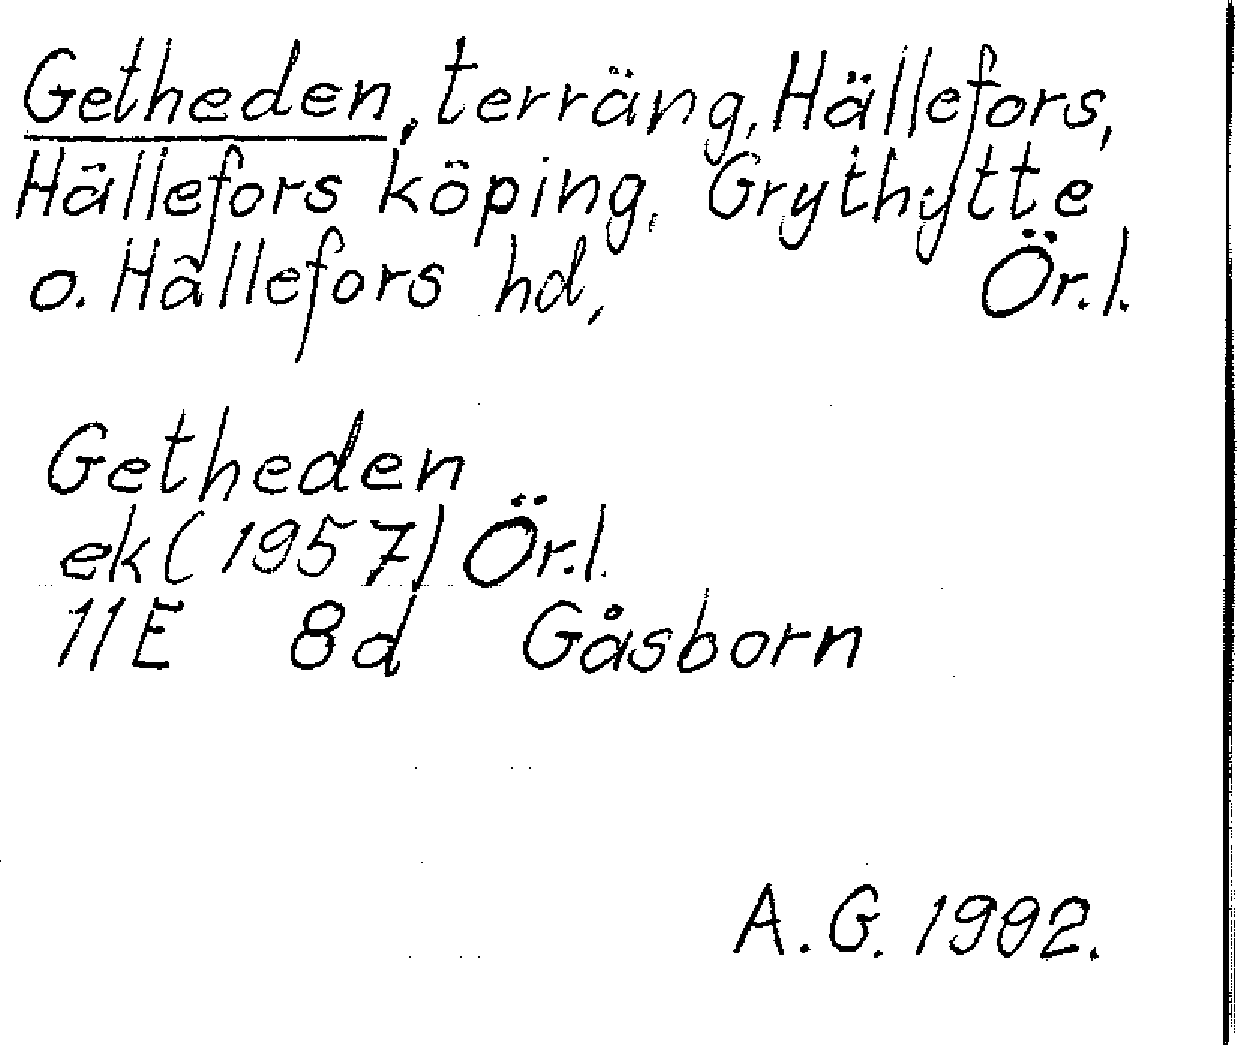 Getheden, terräng, Hällefors,
Hällefors köping, Grythytte
o. Hällefors hd, Ör.l.
Getheden
ek (1957) Ör.l.
11E 8d Gåsborn
A.G. 1992.